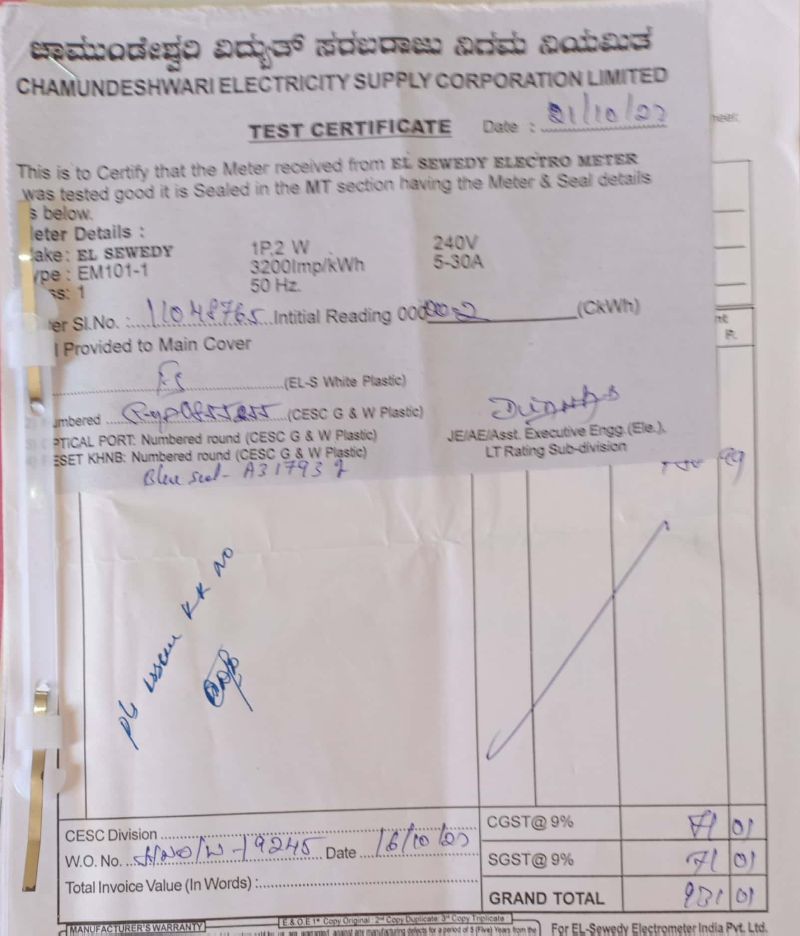 ಚಾಮುಂಡೇಶ್ವರಿ ವಿದ್ಯುತ್ ಸರಬರಾಜು ನಿಗಮ ನಿಯಮಿತ
CHAMUNDESHWARI ELECTRICITY SUPPLY CORPORATION LIMITED
TEST CERTIFICATE Date : 21/10/23
This is to Certify that the Meter received from EL SEWEDY ELECTRO METER
was tested good it is Sealed in the MT section having the Meter & Seal details
s below.
eter Details :
ake: EL SEWEDY 1P,2 W 240V
ype : EM101-1 3200Imp/kWh 5-30A
ss: 1 50 Hz.
er Sl.No. : 11048765 Intitial Reading 000 (CkWh)
l Provided to Main Cover
(EL-S White Plastic)
umbered (CESC G & W Plastic)
PTICAL PORT: Numbered round (CESC G & W Plastic)
ESET KHNB: Numbered round (CESC G & W Plastic)
JE/AE/Asst. Executive Engg.(Ele.),
LT Rating Sub-division
Blue seal- A317932
99
CESC Division
W.O. No. 19245 Date 16/10/23
Total Invoice Value (In Words) :
CGST@ 9% 71 01
SGST@ 9% 71 01
GRAND TOTAL 931 01
E & O E 1st Copy Original : 2nd Copy Duplicate: 3rd Copy Triplicate
MANUFACTURER'S WARRANTY
For EL-Sewedy Electrometer India Pvt. Ltd.